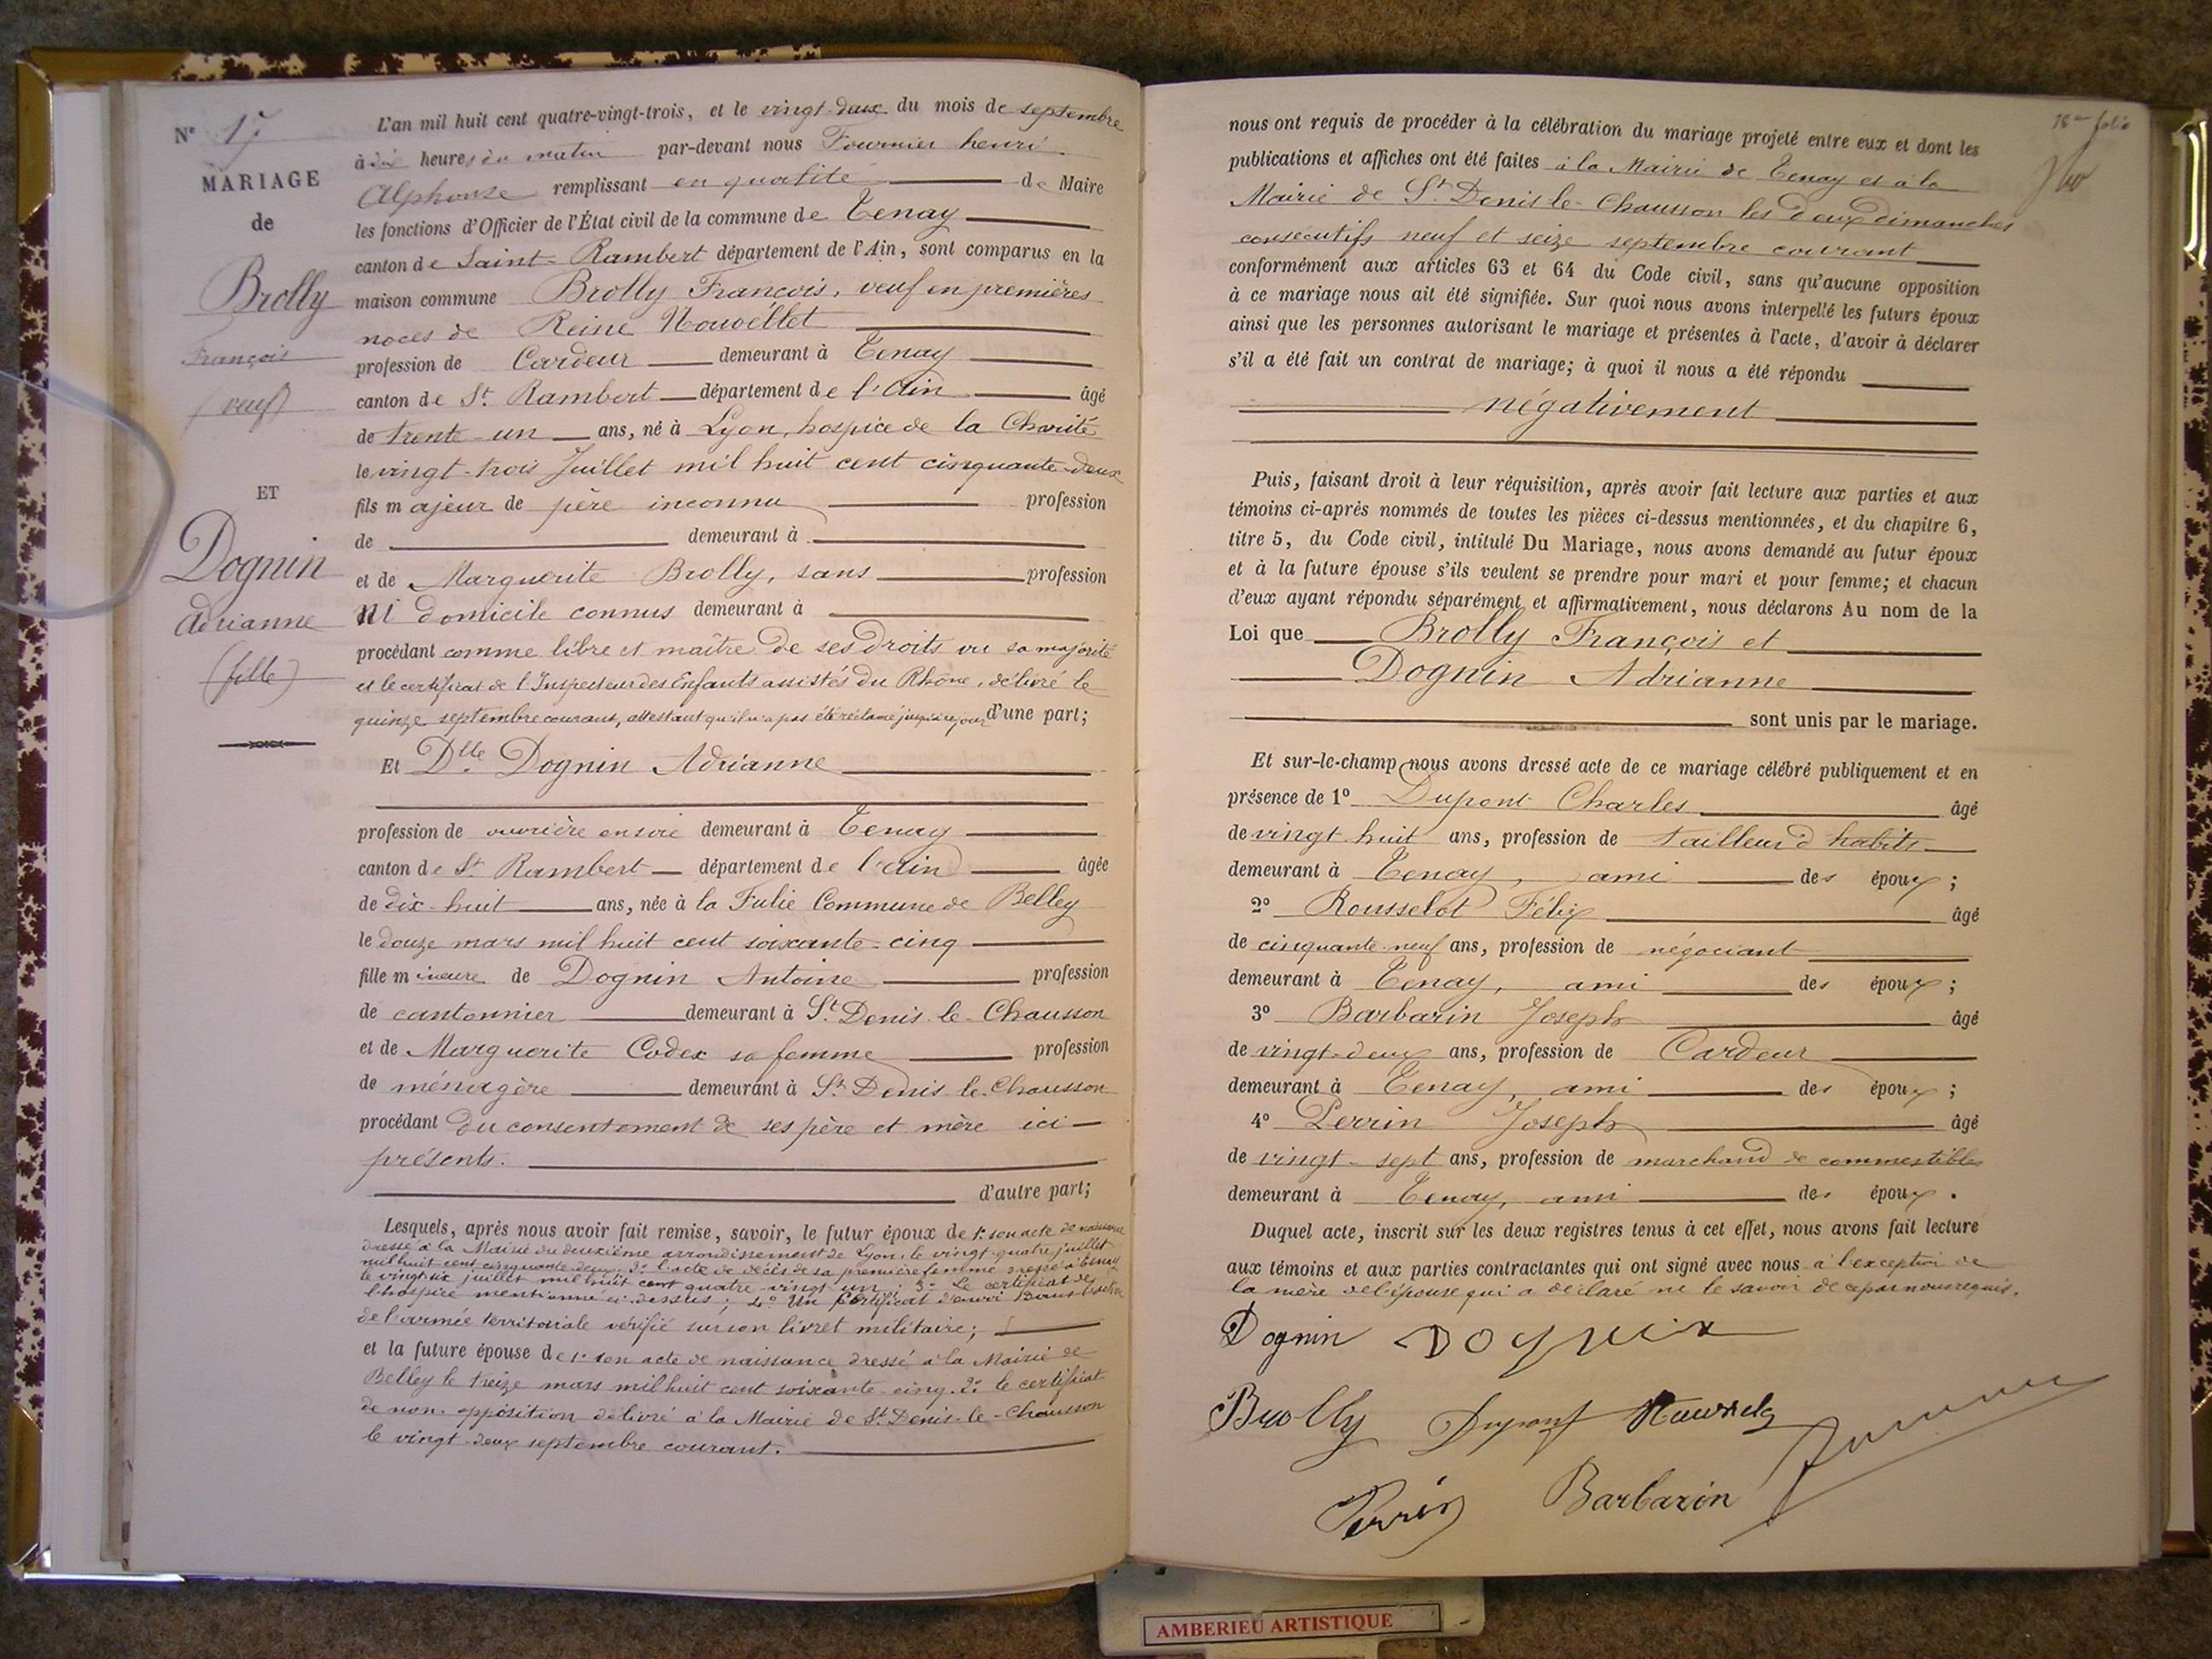 N° 17
MARIAGE
de
Brolly
François
(veuf)
ET
Dognin
Adrianne
(fille)
L'an mil huit cent quatre-vingt-trois, et le vingt-deux du mois de septembre
à dix heures du matin par-devant nous Fournier henri
Alphonse remplissant en qualité de Maire
les fonctions d'Officier de l'État civil de la commune de Tenay
canton de Saint-Rambert département de l'Ain, sont comparus en la
maison commune Brolly François, veuf en premières
noces de Reine Nouvellet
profession de Cardeur demeurant à Tenay
canton de St. Rambert département de l'Ain âgé
de trente-un ans, né à Lyon, hospice de la Charité
le vingt-trois Juillet mil huit cent cinquante-deux
fils majeur de père inconnu profession
de demeurant à
et de Marguerite Brolly, sans profession
ni domicile connus demeurant à
procédant comme libre et maître de ses droits vu sa majorité
et le certificat de l'Inspecteur des Enfants assistés du Rhône, délivré le
quinze septembre courant, attestant qu'il n'a pas été réclamé jusqu'à ce jour d'une part;
Et Dlle Dognin Adrianne
profession de ouvrière en soie demeurant à Tenay
canton de St. Rambert département de l'Ain âgée
de dix-huit ans, née à la Fulie Commune de Belley
le douze mars mil huit cent soixante-cinq
fille mineure de Dognin Antoine profession
de cantonnier demeurant à St. Denis-le-Chausson
et de Marguerite Codex sa femme profession
de ménagère demeurant à St. Denis-le-Chausson
procédant du consentement de ses père et mère ici
présents.
d'autre part;
Lesquels, après nous avoir fait remise, savoir, le futur époux de 1° son acte de naissance
dressé à la Mairie du deuxième arrondissement de Lyon, le vingt-quatre juillet
mil huit cent cinquante-deux; 2° l'acte de décès de sa première femme dressé à Tenay
le vingt-six juillet mil huit cent quatre-vingt-un; 3° Le certificat de
l'hospice mentionné ci-dessus; 4° Un certificat d'envoi dans
de l'armée territoriale vérifié sur son livret militaire;
et la future épouse de 1° son acte de naissance dressé à la Mairie de
Belley le treize mars mil huit cent soixante-cinq. 2° le certificat
de non-opposition délivré à la Mairie de St. Denis-le-Chausson
le vingt-deux septembre courant.
18me folio
nous ont requis de procéder à la célébration du mariage projeté entre eux et dont les
publications et affiches ont été faites à la Mairie de Tenay et à la
Mairie de St. Denis-le-Chausson les deux dimanches
consécutifs neuf et seize septembre courant
conformément aux articles 63 et 64 du Code civil, sans qu'aucune opposition
à ce mariage nous ait été signifiée. Sur quoi nous avons interpellé les futurs époux
ainsi que les personnes autorisant le mariage et présentes à l'acte, d'avoir à déclarer
s'il a été fait un contrat de mariage; à quoi il nous a été répondu
négativement
Puis, faisant droit à leur réquisition, après avoir fait lecture aux parties et aux
témoins ci-après nommés de toutes les pièces ci-dessus mentionnées, et du chapitre 6,
titre 5, du Code civil, intitulé Du Mariage, nous avons demandé au futur époux
et à la future épouse s'ils veulent se prendre pour mari et pour femme; et chacun
d'eux ayant répondu séparément et affirmativement, nous déclarons Au nom de la
Loi que Brolly François et
Dognin Adrianne
sont unis par le mariage.
Et sur-le-champ nous avons dressé acte de ce mariage célébré publiquement et en
présence de 1° Dupont Charles âgé
de vingt huit ans, profession de tailleur d'habits
demeurant à Tenay, ami des époux;
2° Rousselot Félix âgé
de cinquante-neuf ans, profession de négociant
demeurant à Tenay, ami des époux;
3° Barbarin Joseph âgé
de vingt-deux ans, profession de Cardeur
demeurant à Tenay, ami des époux;
4° Perrin Joseph âgé
de vingt-sept ans, profession de marchand de commestibles
demeurant à Tenay, ami des époux.
Duquel acte, inscrit sur les deux registres tenus à cet effet, nous avons fait lecture
aux témoins et aux parties contractantes qui ont signé avec nous à l'exception de
la mère de l'épouse qui a déclaré ne le savoir de ce par nous requis.
Dognin Dognin
Brolly Dupont
Perrin Barbarin
AMBERIEU ARTISTIQUE